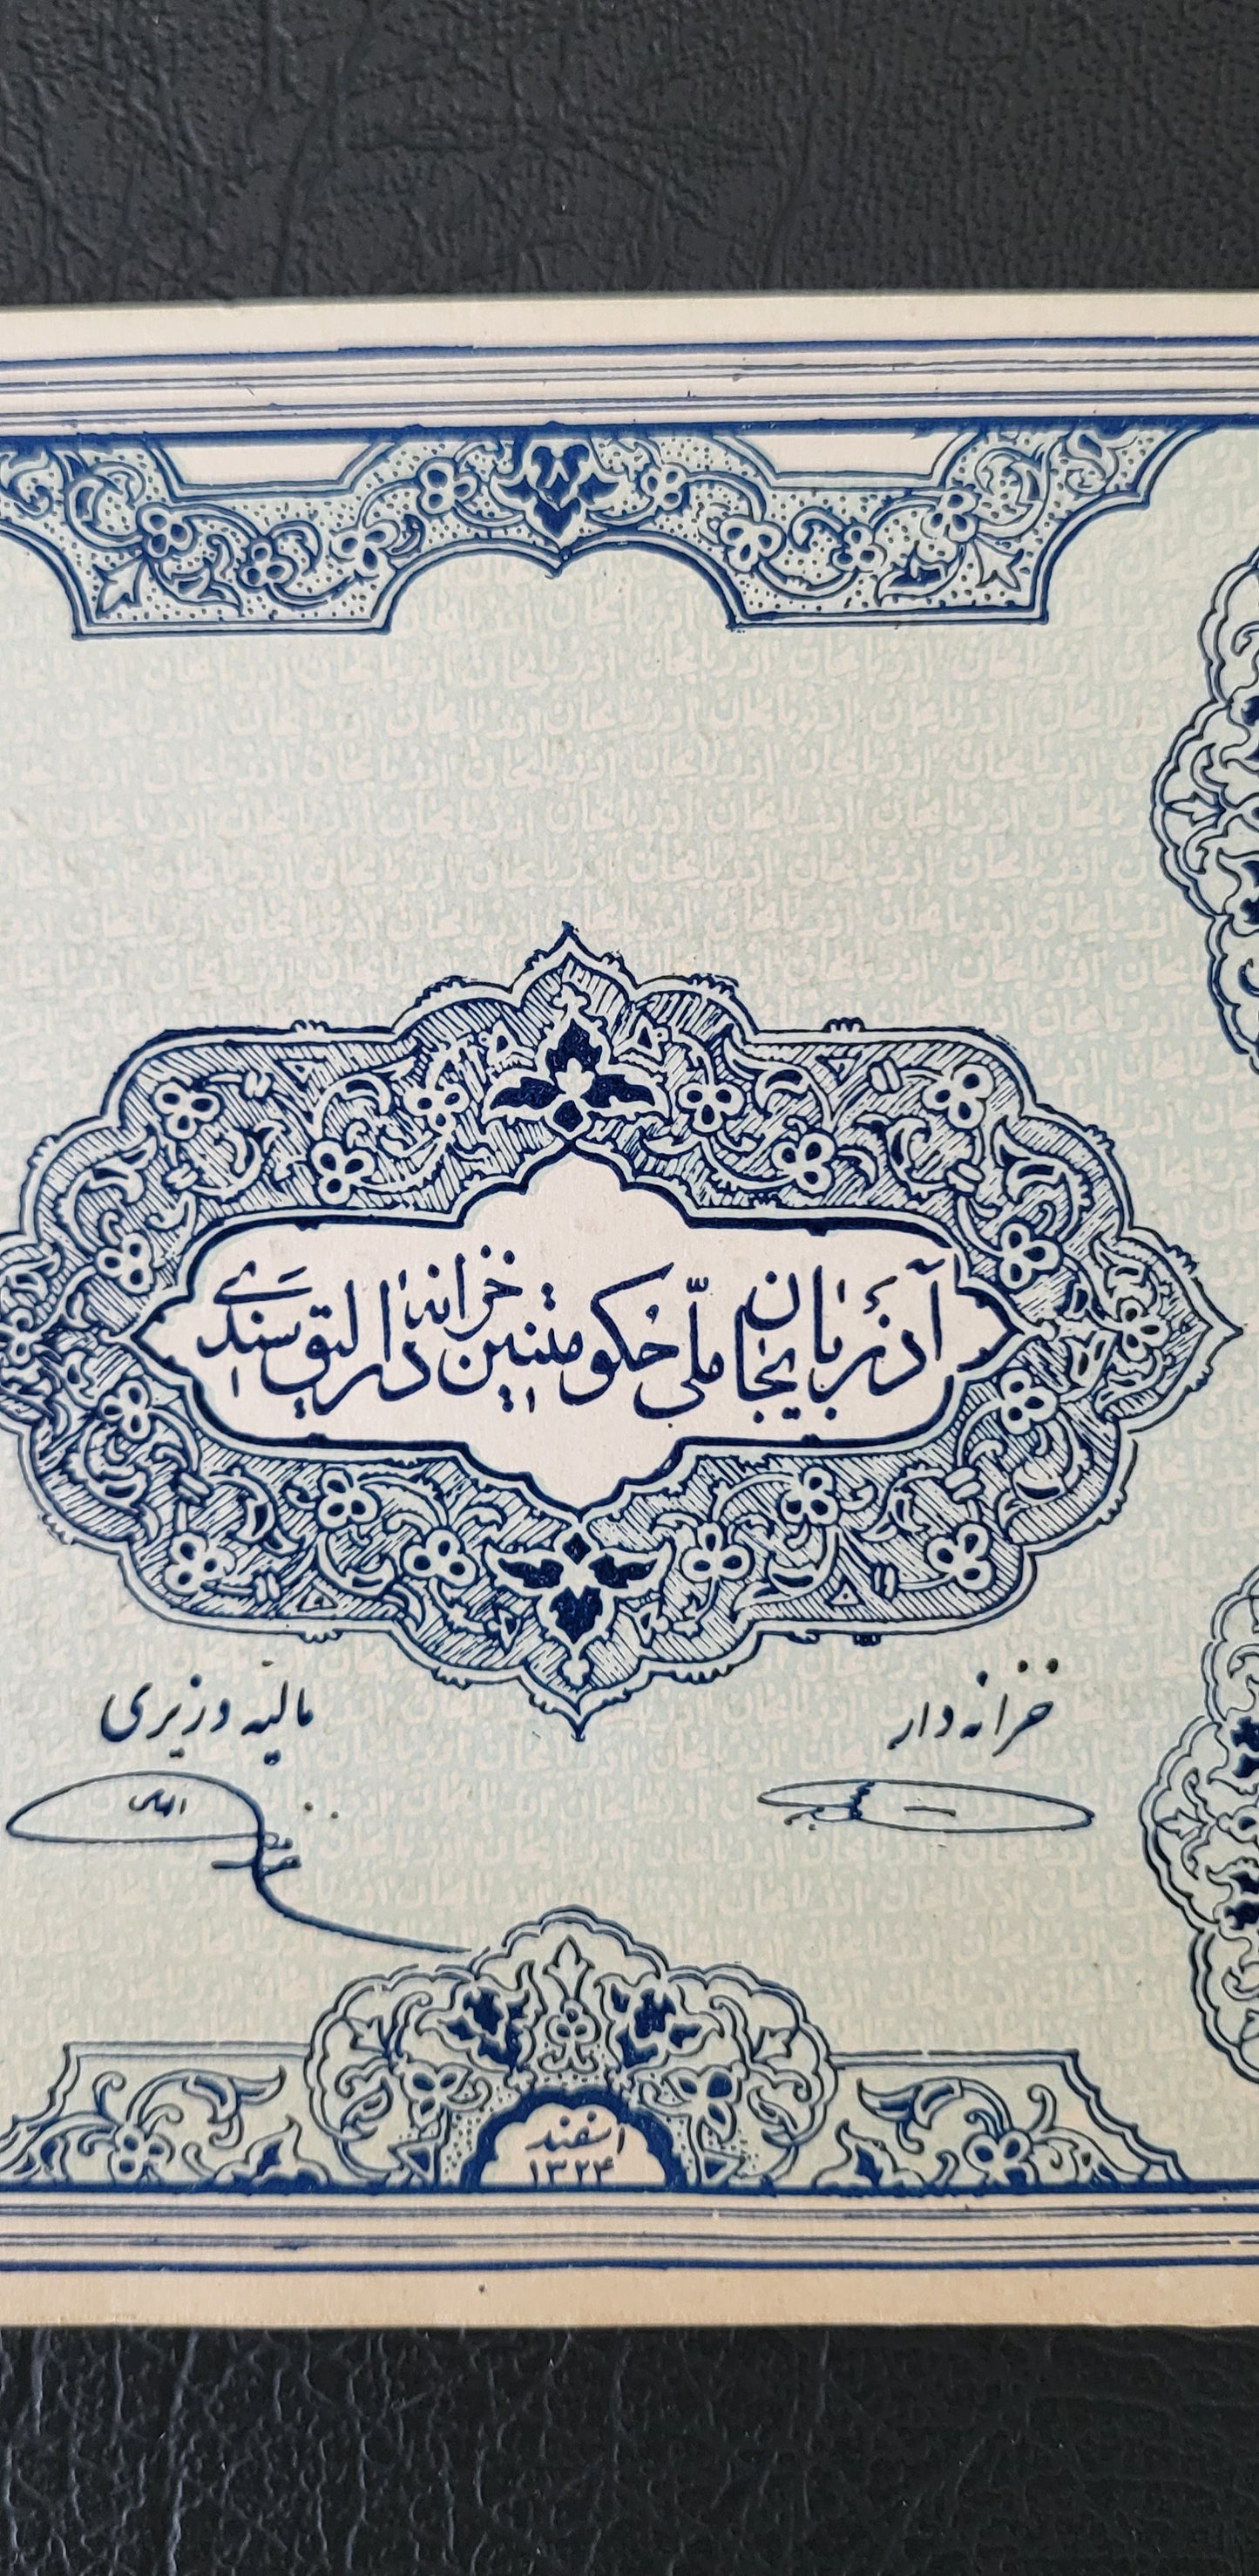 آذربایجان ملّی حکومتینین خزانه‌دارلیق سندی
خزانه دار
مالیه وزیری
اسفند
۱۳۲۴